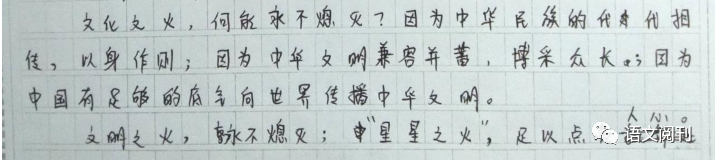 文化之火，何能永不熄灭？因为中华民族的代代相
传，以身作则；因为中华文明兼容并蓄，博采众长；因为
中国有足够的底气向世界传播中华文明。
文明之火，永不熄灭；"星星之火"，足以点
语文阅刊